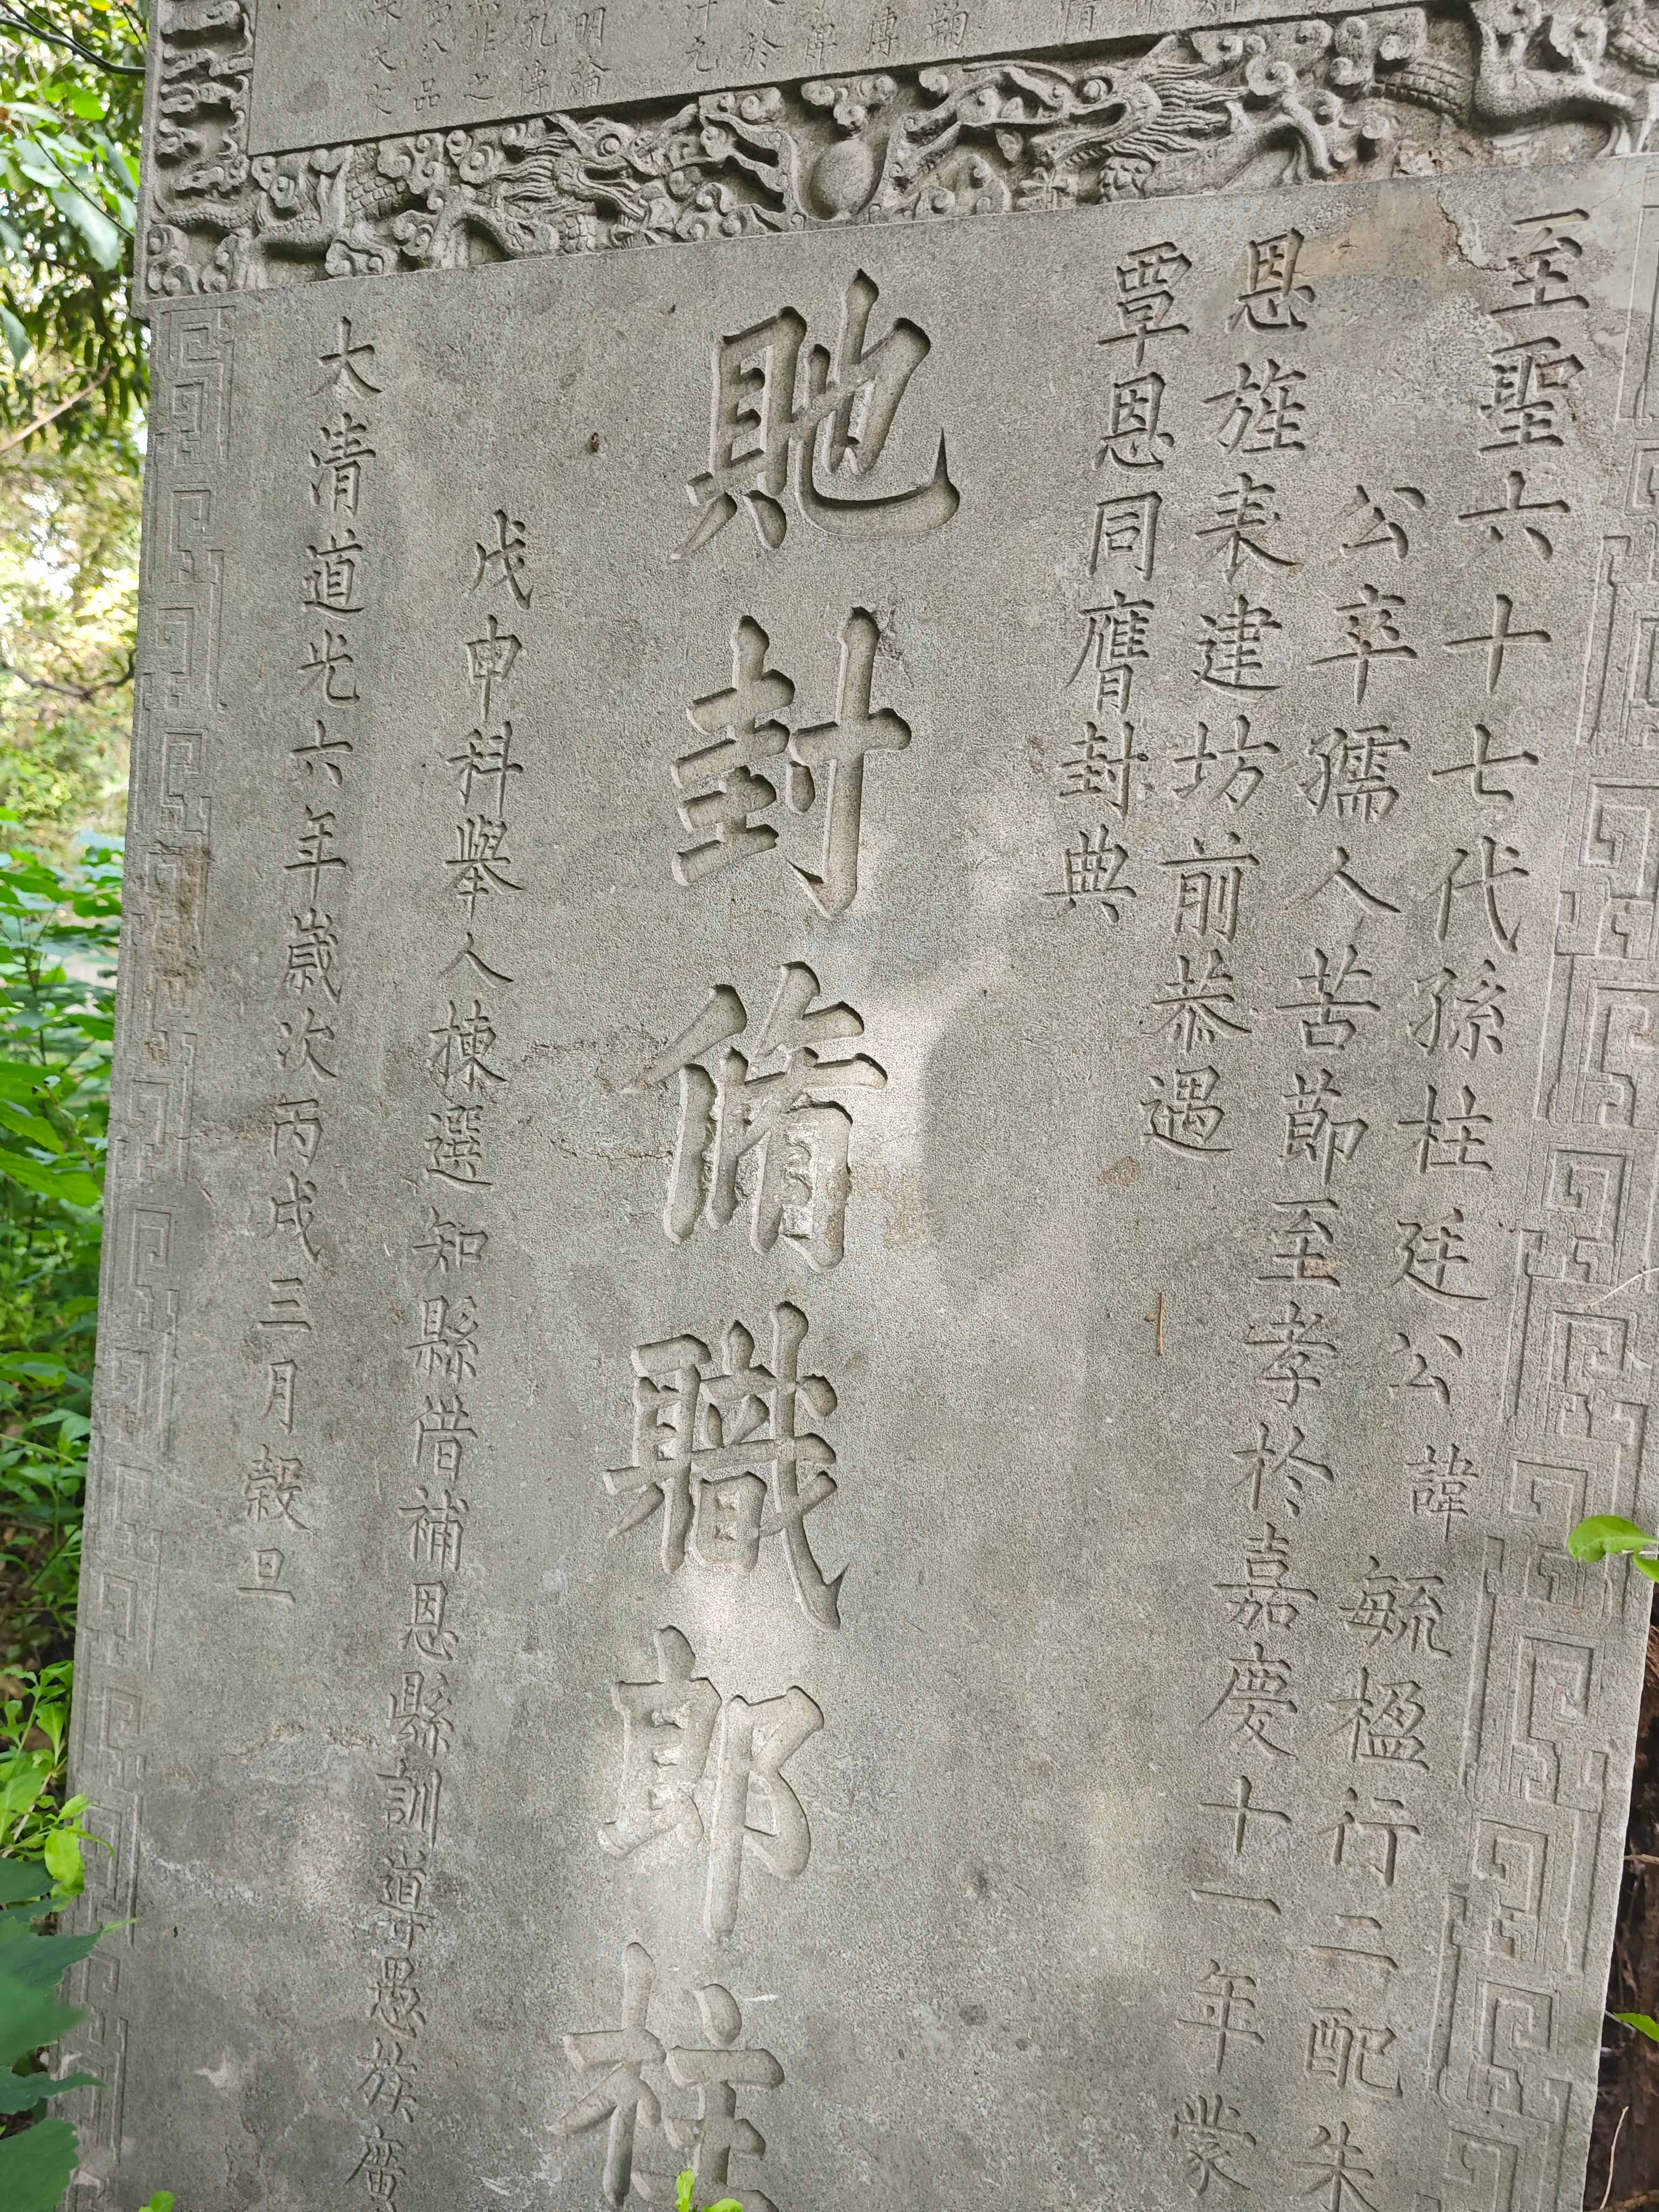 至聖六十七代孫柱廷公諱毓楹行二配朱
公卒孺人苦節至孝於嘉慶十一年蒙
恩旌表建坊前恭遇
覃恩同膺封典
貤封脩職郎柱
戊申科舉人揀選知縣借補恩縣訓導愚族廣
大清道光六年歲次丙戌三月穀旦